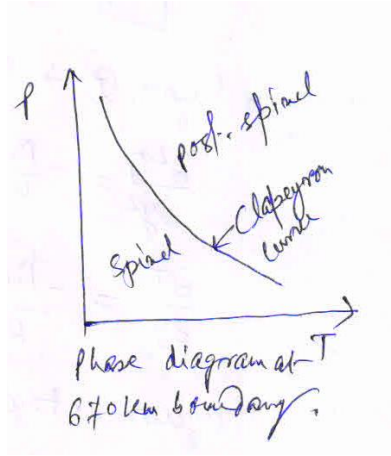 P
post-spinel
Clapeyron
curve
Spinel
T
Phase diagram at
670 km boundary.